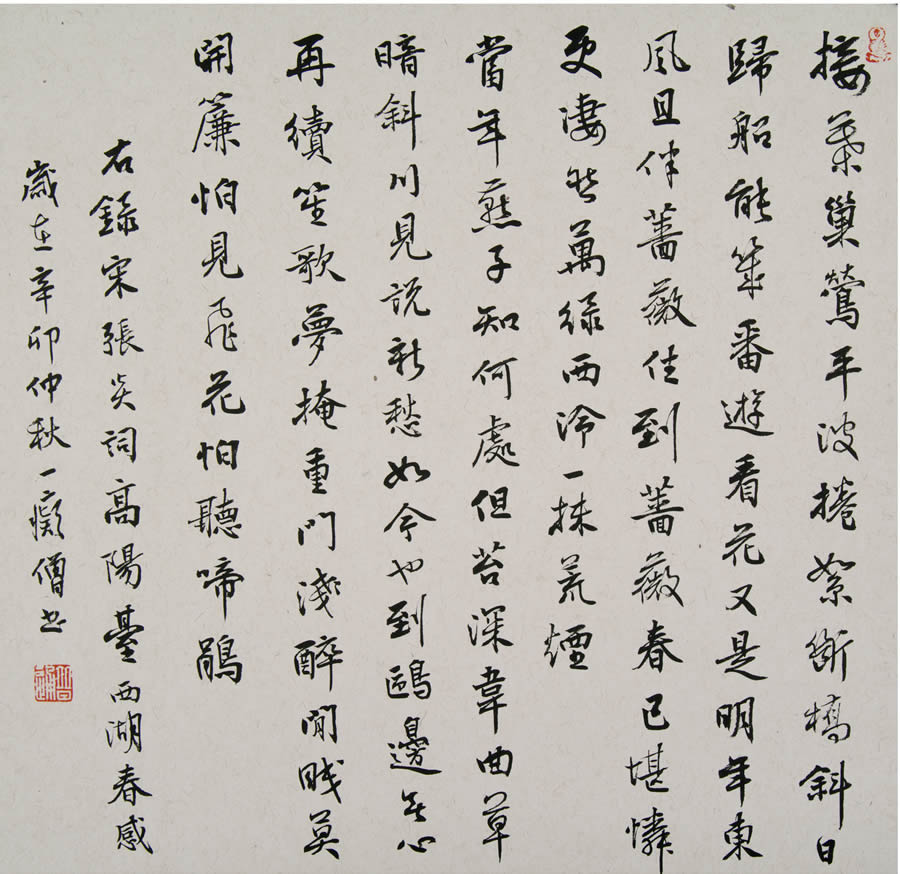 接葉巢鶯平波捲絮斷橋斜日
歸船能幾番遊看花又是明年東
風且伴薔薇住到薔薇春已堪憐
更淒然萬綠西泠一抹荒煙
當年燕子知何處但苔深韋曲草
暗斜川見說新愁如今也到鷗邊無心
再續笙歌夢掩重門淺醉閒眠莫
開簾怕見飛花怕聽啼鵑
右錄宋張炎詞高陽臺西湖春感
歲在辛卯仲秋一癡僧書